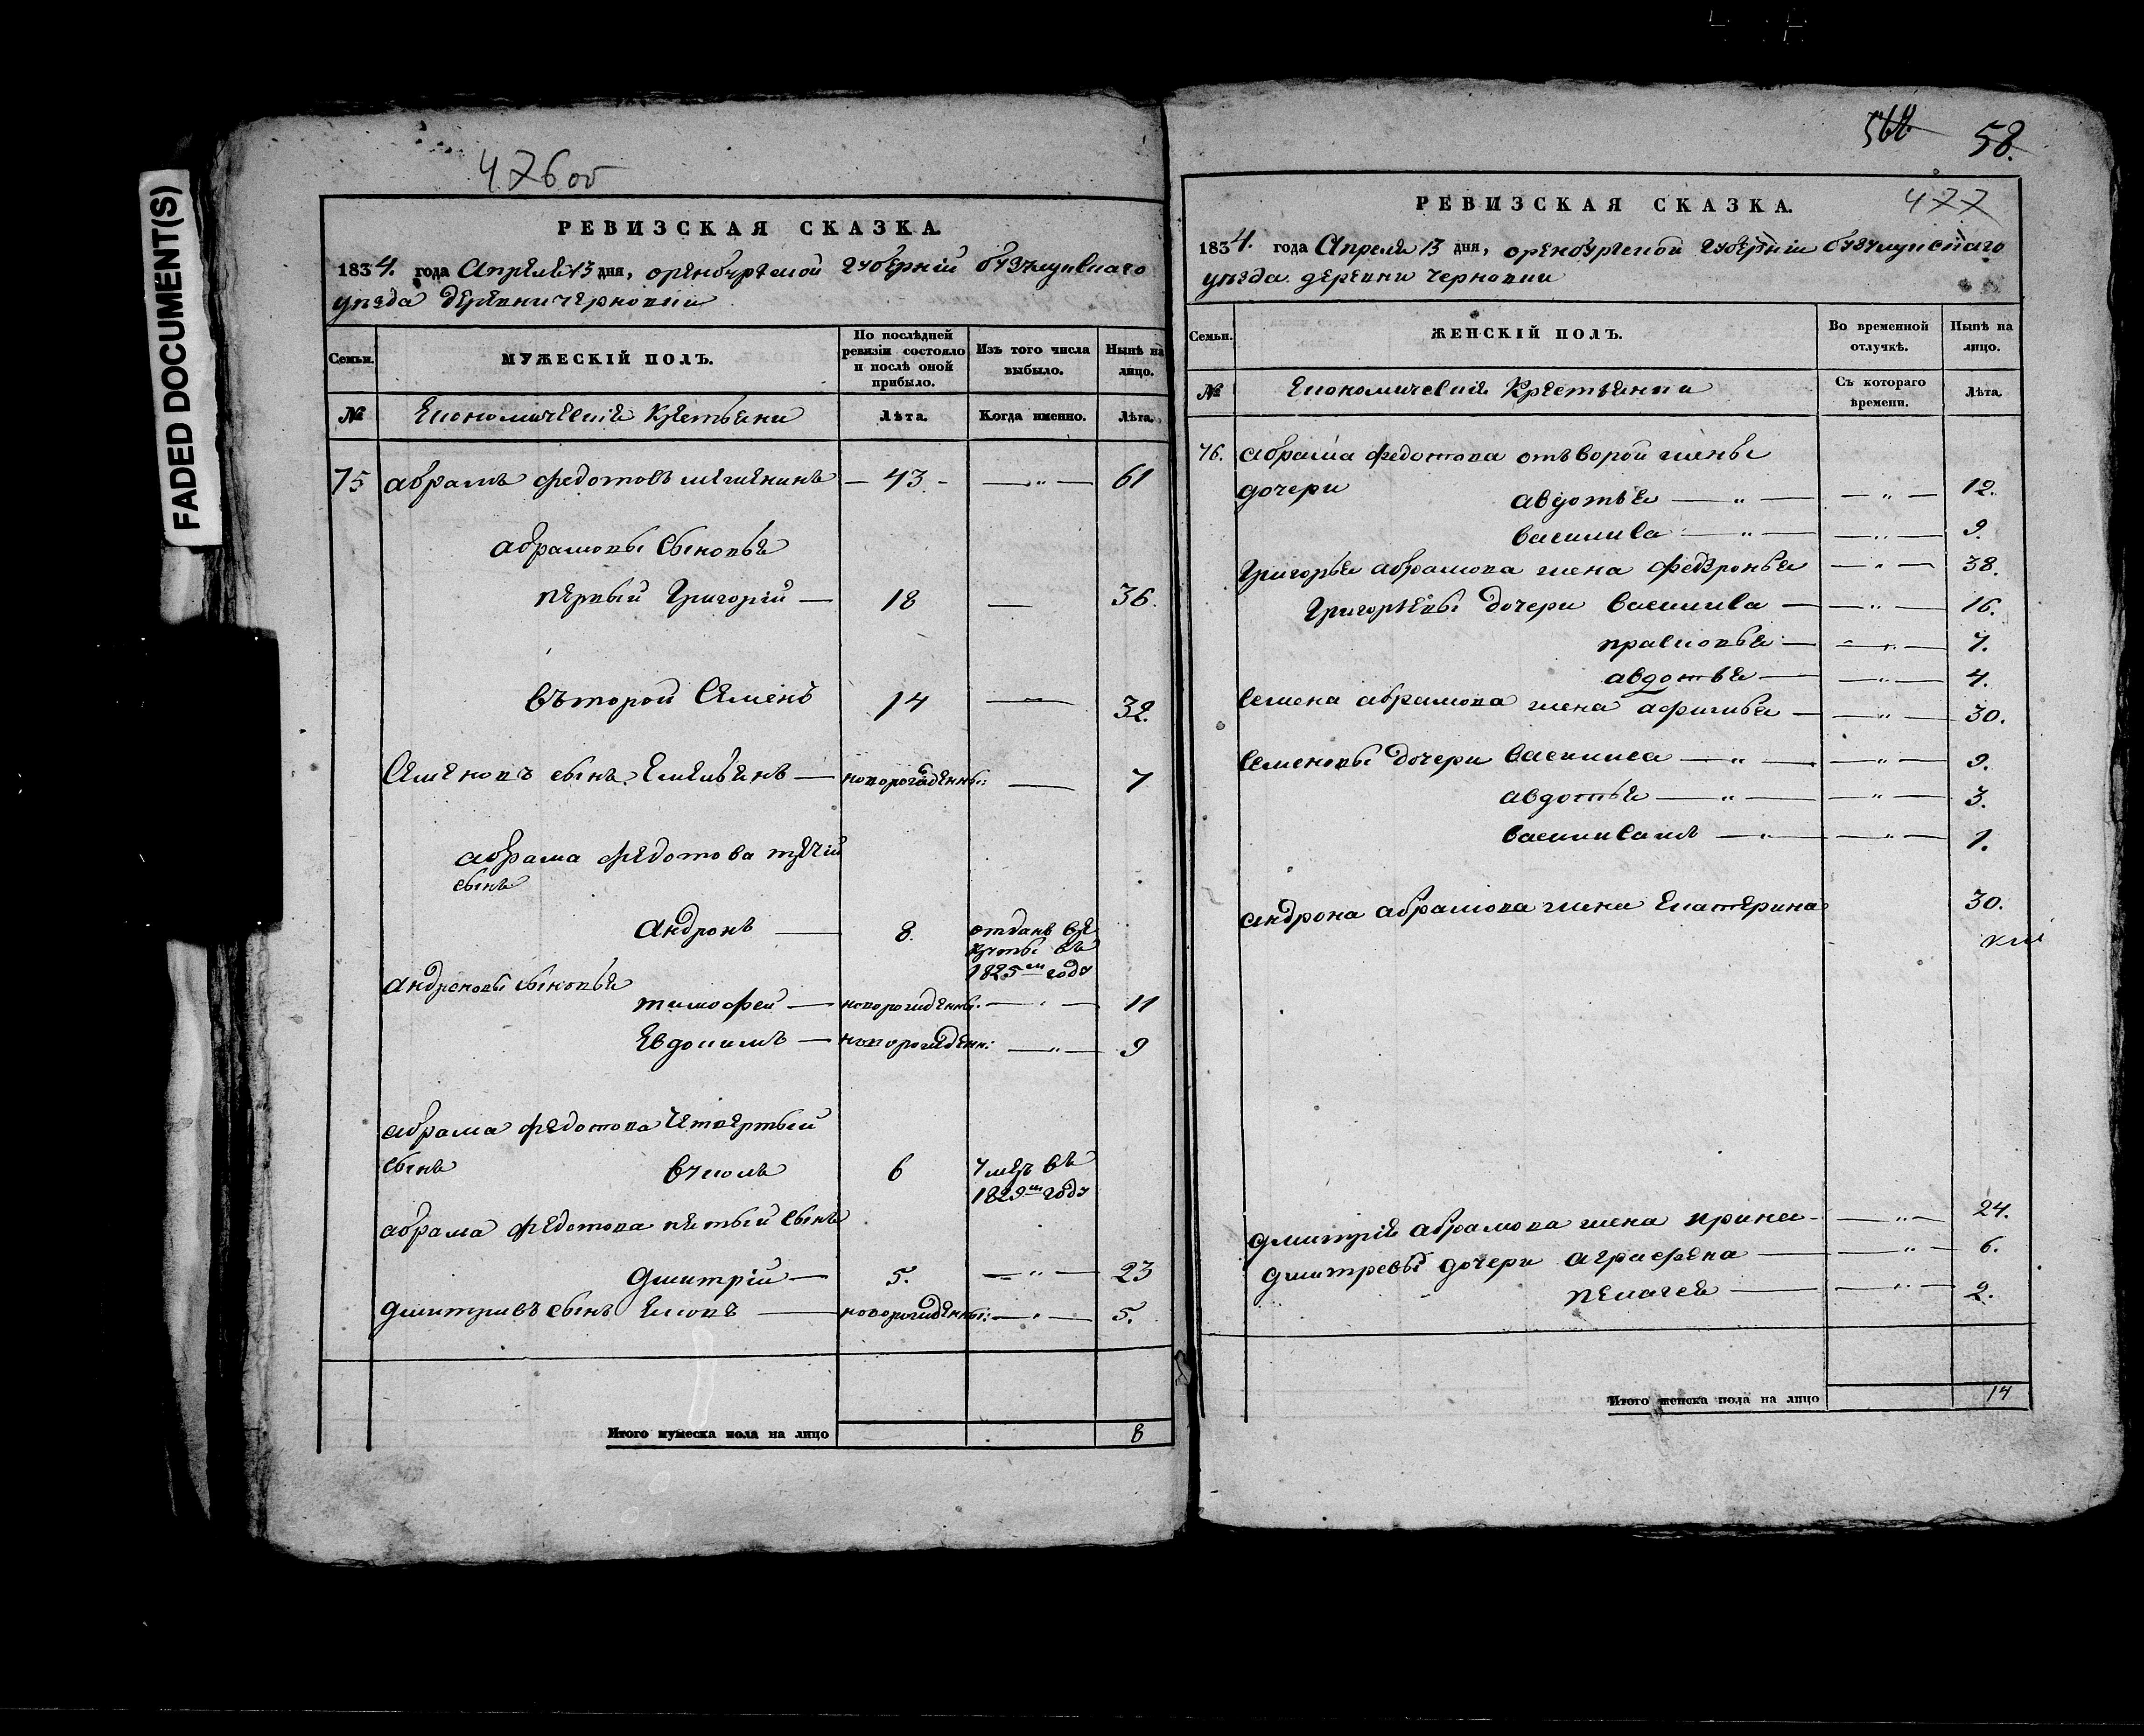 FADED DOCUMENT(S)
476 об
РЕВИЗСКАЯ СКАЗКА.
1834. года Апреля 13 дня, оренбурской губернiй бузулускаго
уезда деревни черновки
Семьи.
МУЖЕСКІЙ ПОЛЪ.
По послѣдней ревизіи состояло и послѣ оной прибыло.
Изъ того числа выбыло.
Нынѣ на лицо.
№
Економическiе Крестьяни
Лѣта.
Когда именно.
Лѣта.
75 абрамъ федотовъ — 43. — —„— 61
абрамовы сыновья
первый Григорiй — 18 — 36.
въторой Семенъ 14 — 32.
Семеновъ сынъ Емельянъ — новорожденны: — 7
абрама федотова третiй
сынъ
андронъ — 8. отданъ в ре
круты въ
1825м году
андроновы сыновья
тимофей — новорожденны: —„— 11
Евдокимъ — новорожденн: —„— 9
абрама федотова четвертый
сынъ
вуколъ 6 умеръ въ
1829м году
абрама федотова пятый сынъ
дмитрiй — 5. —„— 23
дмитривъ сынъ — новорожденны: —„— 5.
Итого мужеска пола на лицо 8
568 58.
РЕВИЗСКАЯ СКАЗКА.
477
1834. года Апреля 13 дня, оренбурской губернiи бузулускаго
уезда деревни черновки
Семьи.
ЖЕНСКІЙ ПОЛЪ.
Во временной отлучкѣ.
Нынѣ на лицо.
№
Економическiя Крестьянки
Съ котораго времени.
Лѣта.
76. абрама федотова отъ второй жены
дочери
авдотья —„— —„— 12.
василиса —„— —„— 9.
Григорья абрамова жена федронья —„— 38.
Григорьевы дочери василиса — —„— 16.
прасковья — —„— 7.
авдотья — —„— 4.
семена абрамова жена афимья — —„— 30.
семеновы дочери василиса —„— —„— 9.
авдотья —„— —„— 3.
—„— —„— 1.
андрона абрамова жена Екатерина 30.
дмитрiя абрамова жена ирина — —„— 24.
дмитревы дочери аграфена — —„— 6.
пелагея — —„— 2.
Итого женска пола на лицо 14